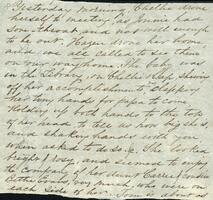 Yesterday morning, Chellis drove
herself to meeting as Annie had
sore throat, and not well enough
to be out. Hazen drove her home
and we all called to see them
on our way home. The baby was
in the Library, on Chellis lap showing
off her accomplishments clapping
her tiny hands for papa to come
Holding up both hands to the top
of her head to tell us how big she is,
and shaking hands with you
when asked to do so. She looked
bright & rosy, and seemed to enjoy
the company of her Aunt Carrie &
very much, who were on
each side of her. Tom is about as